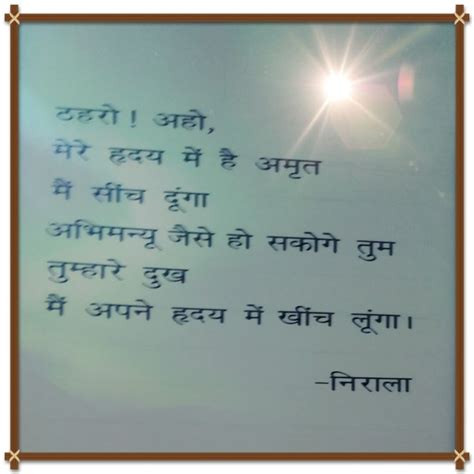 ठहरो ! अहो,
मेरे हृदय में है अमृत
मैं सींच दूंगा
अभिमन्यू जैसे हो सकोगे तुम
तुम्हारे दुख
मैं अपने हृदय में खींच लूंगा।
-निराला